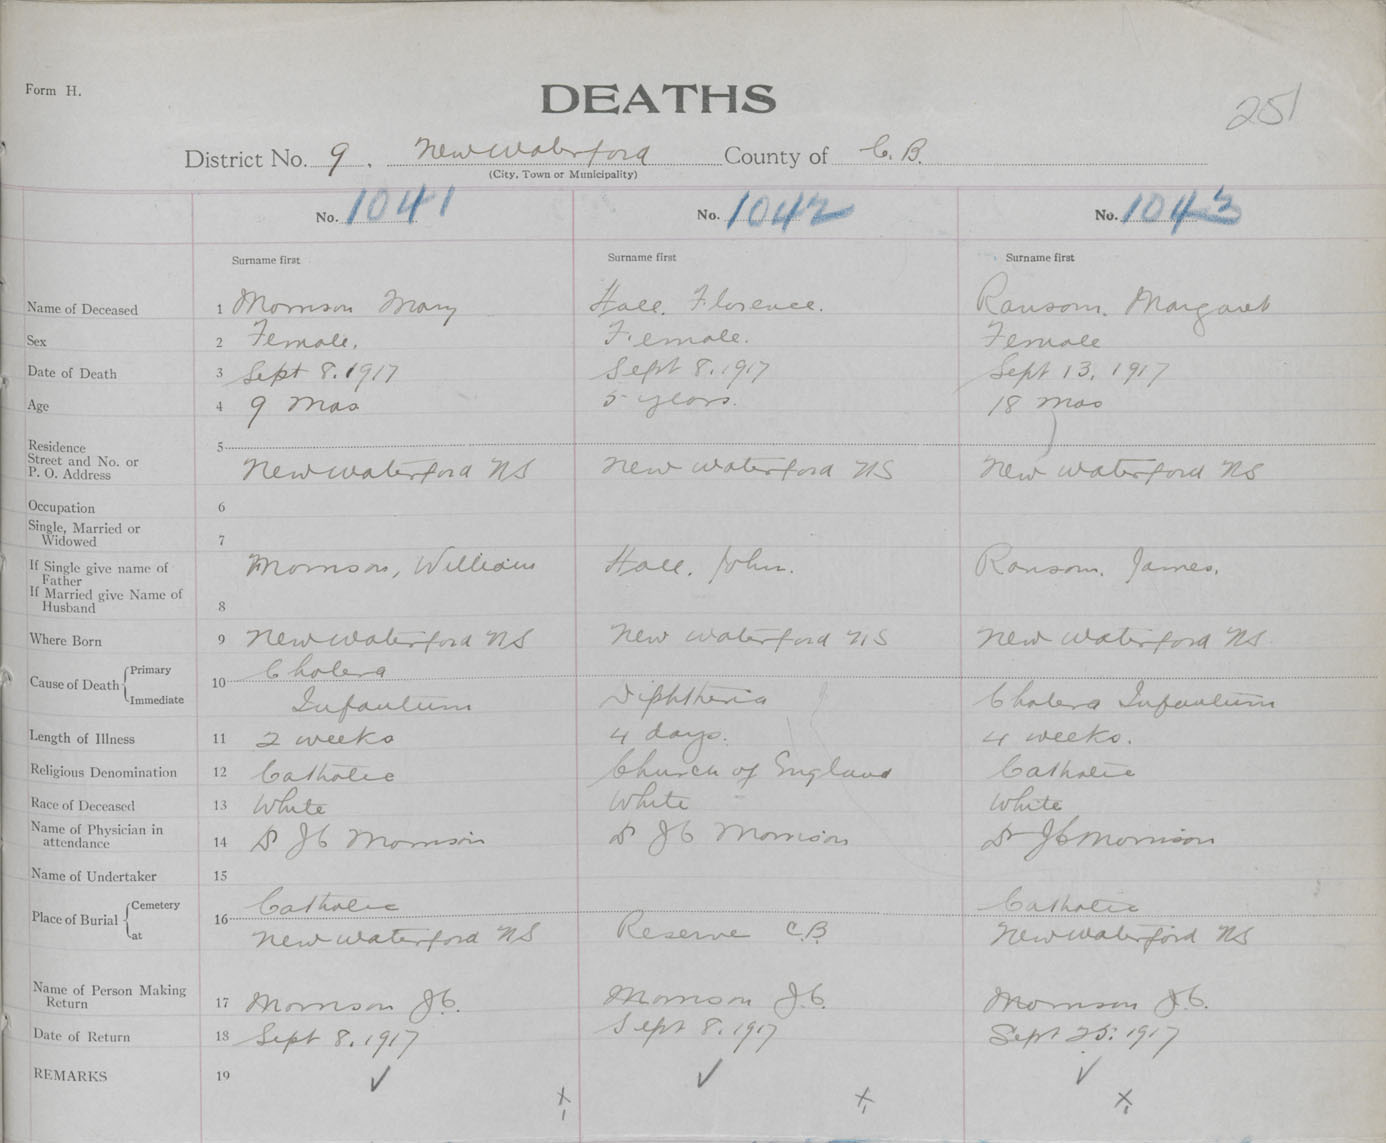 Form H.
DEATHS
251
District No. 9. New Waterford County of C. B.
(City, Town or Municipality)
No. 1041 No. 1042 No. 1043
Surname first Surname first Surname first
Name of Deceased 1 Morrison Mary Hall, Florence. Ransom, Margaret
Sex 2 Female. Female. Female
Date of Death 3 Sept 8. 1917 Sept 8. 1917 Sept 13, 1917
Age 4 9 mos 5 years. 18 mos
Residence 5
Street and No. or
P. O. Address New Waterford NS New Waterford NS New Waterford NS
Occupation 6
Single, Married or
Widowed 7
If Single give name of Morrison, William Hall, John. Ransom, James.
Father
If Married give Name of
Husband 8
Where Born 9 New Waterford NS New Waterford NS New Waterford NS
Cause of Death Primary 10 Cholera
Immediate Infantum Diphtheria Cholera Infantum
Length of Illness 11 2 weeks 4 days. 4 weeks.
Religious Denomination 12 Catholic Church of England Catholic
Race of Deceased 13 White White White
Name of Physician in
attendance 14 Dr J C Morrison Dr J C Morrison Dr J C Morrison
Name of Undertaker 15
Place of Burial Cemetery 16 Catholic Catholic
at New Waterford NS Reserve C.B. New Waterford NS
Name of Person Making
Return 17 Morrison J.C. Morrison J.C. Morrison J.C.
Date of Return 18 Sept 8. 1917 Sept 8. 1917 Sept 25. 1917
REMARKS 19 ✓ ✓ ✓
x x x